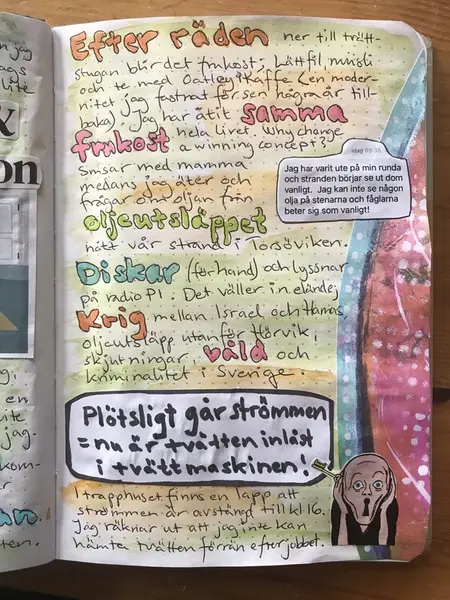 Efter räden ner till tvätt-
stugan blir det frukost; Lättfil, müsli
och te med Oatley iKaffe (en moder-
nitet jag fastnat för sen några år till-
baka) Jag har ätit samma
frukost hela livet. Why change
a winning concept?
Smsar med mamma
medans jag äter och
frågar om oljan från
oljeutsläppet
nått vår strand i Torsöviken.
Diskar (för hand) och lyssnar
på radio P1. Det väller in elände;
Krig mellan Israel och Hamas,
oljeutsläpp utanför Hörvik,
skjutningar våld och
kriminalitet i Sverige.
idag 09:38
Jag har varit ute på min runda
och stranden börjar se ut dom
vanligt. Jag kan inte se någon
olja på stenarna och fåglarna
beter sig som vanligt!
Plötsligt går strömmen
= nu är tvätten inlåst
i tvättmaskinen!
I trapphuset finns en lapp att
strömmen är avstängd till kl 16.
Jag räknar ut att jag inte kan
hämta tvätten förrän efter jobbet.